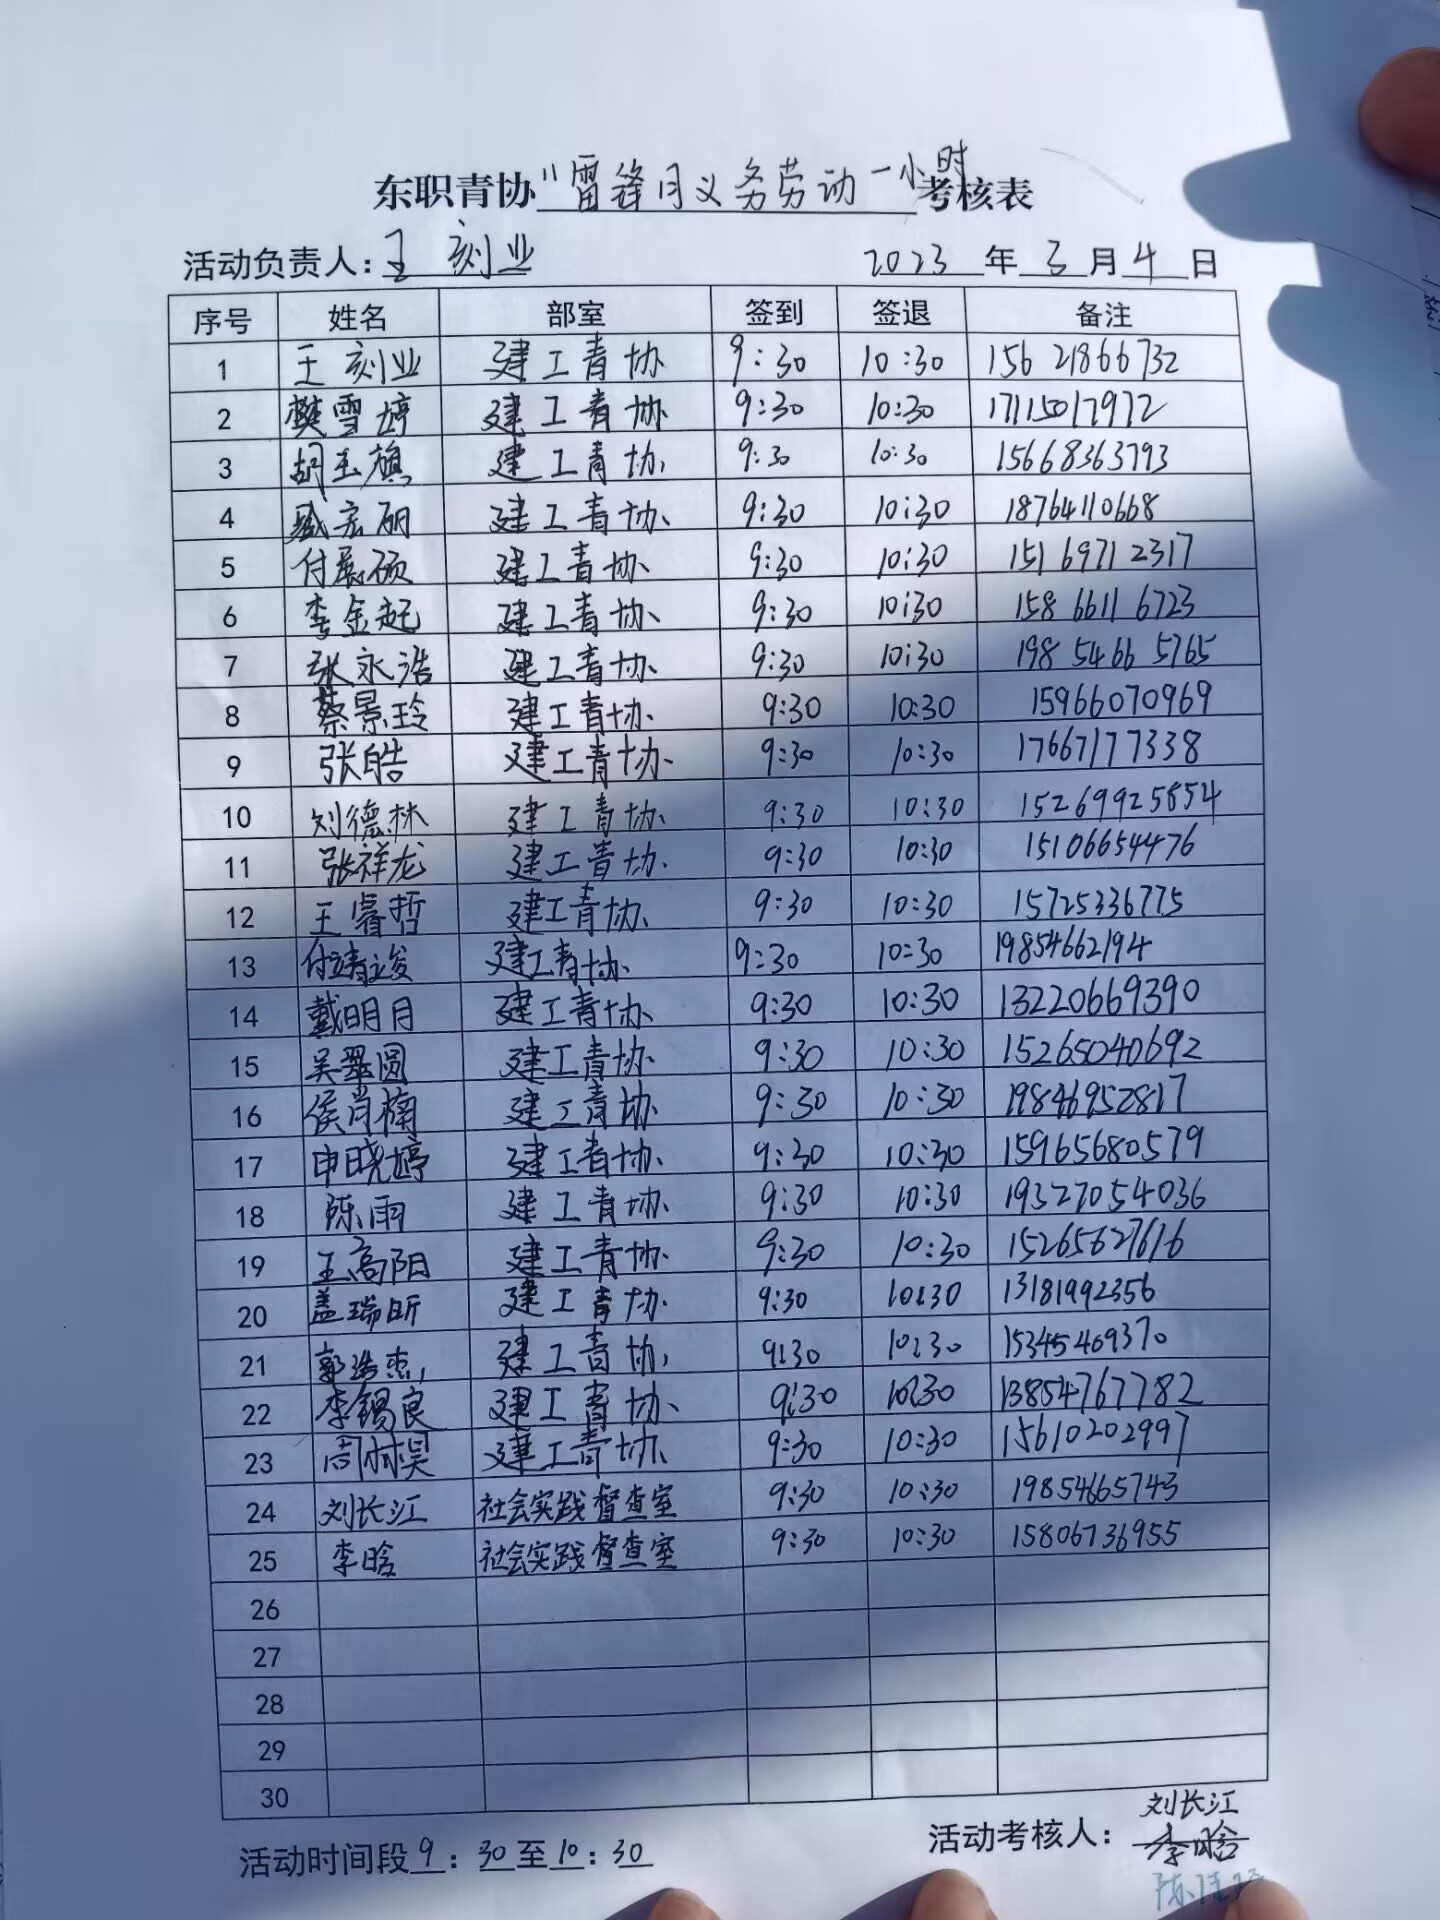 东职青协"雷锋月义务劳动一小时考核表
活动负责人：王刻业 2023年3月4日
序号 姓名 部室 签到 签退 备注
1 王刻业 建工青协 9:30 10:30 15621866732
2 樊雪婷 建工青协 9:30 10:30 17115017972
3 胡玉旗 建工青协 9:30 10:30 15668363793
4 臧宏丽 建工青协 9:30 10:30 18764110668
5 付晨硕 建工青协 9:30 10:30 15169712317
6 李金起 建工青协 9:30 10:30 15866116723
7 张永浩 建工青协 9:30 10:30 19854665765
8 蔡景玲 建工青协 9:30 10:30 15966070969
9 张皓 建工青协 9:30 10:30 17667177338
10 刘德林 建工青协 9:30 10:30 15269925854
11 张祥龙 建工青协 9:30 10:30 15106654476
12 王睿哲 建工青协 9:30 10:30 15725336775
13 付靖浚 建工青协 9:30 10:30 19854662194
14 戴明月 建工青协 9:30 10:30 13220669390
15 吴翠圆 建工青协 9:30 10:30 15265040692
16 侯肖楠 建工青协 9:30 10:30 19846952817
17 申晓婷 建工青协 9:30 10:30 15965680579
18 陈雨 建工青协 9:30 10:30 19327054036
19 王高阳 建工青协 9:30 10:30 15265627616
20 盖瑞昕 建工青协 9:30 10:30 13181992356
21 郭浩杰 建工青协 9:30 10:30 15345469370
22 李锡良 建工青协 9:30 10:30 13854767782
23 周树昊 建工青协 9:30 10:30 15610202997
24 刘长江 社会实践督查室 9:30 10:30 19854665743
25 李晗 社会实践督查室 9:30 10:30 15806736955
26
27
28
29
30
刘长江
活动时间段9：30至10：30 活动考核人：李晗